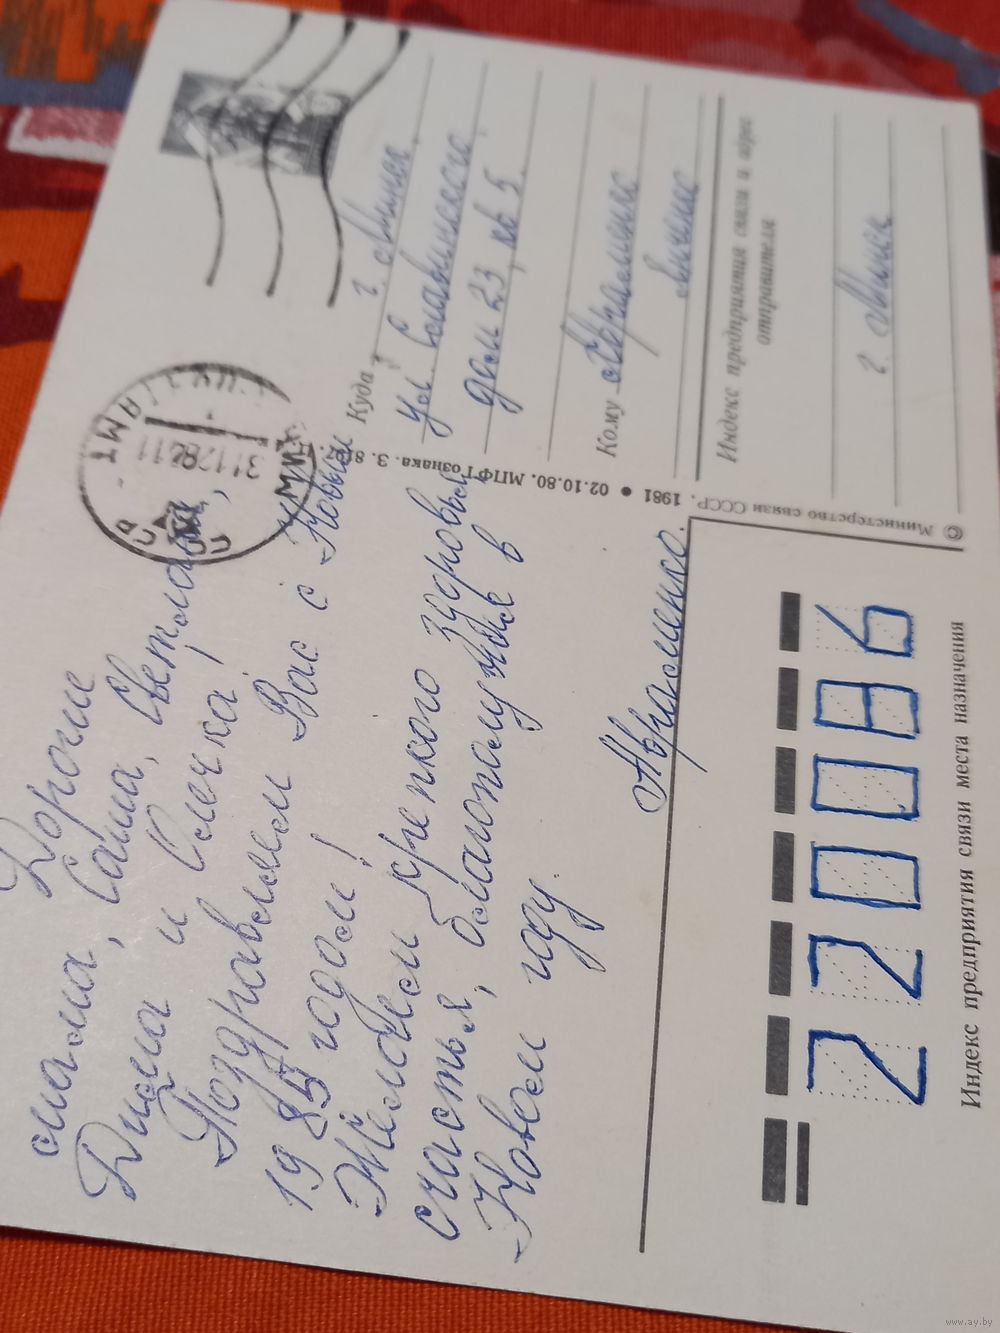 Дорогие
мама, Саша, Светлана,
Дима и Олечка!
Поздравляем Вас с Новым
1985 годом!
Желаем крепкого здоровья
счастья, благополучия в
Новом году.
Авраменко.
Куда г. Минск
ул.
дом 23, кв 5.
Кому Авраменко
Индекс предприятия связи и адрес
отправителя
г. Минск
© Министерство связи СССР. 1981 ● 02.10.80. МПФ Гознака. З. 8107.
ПОЧТАМТ
МИНСК
311284 11
СССР
220086
Индекс предприятия связи места назначения
www.ay.by